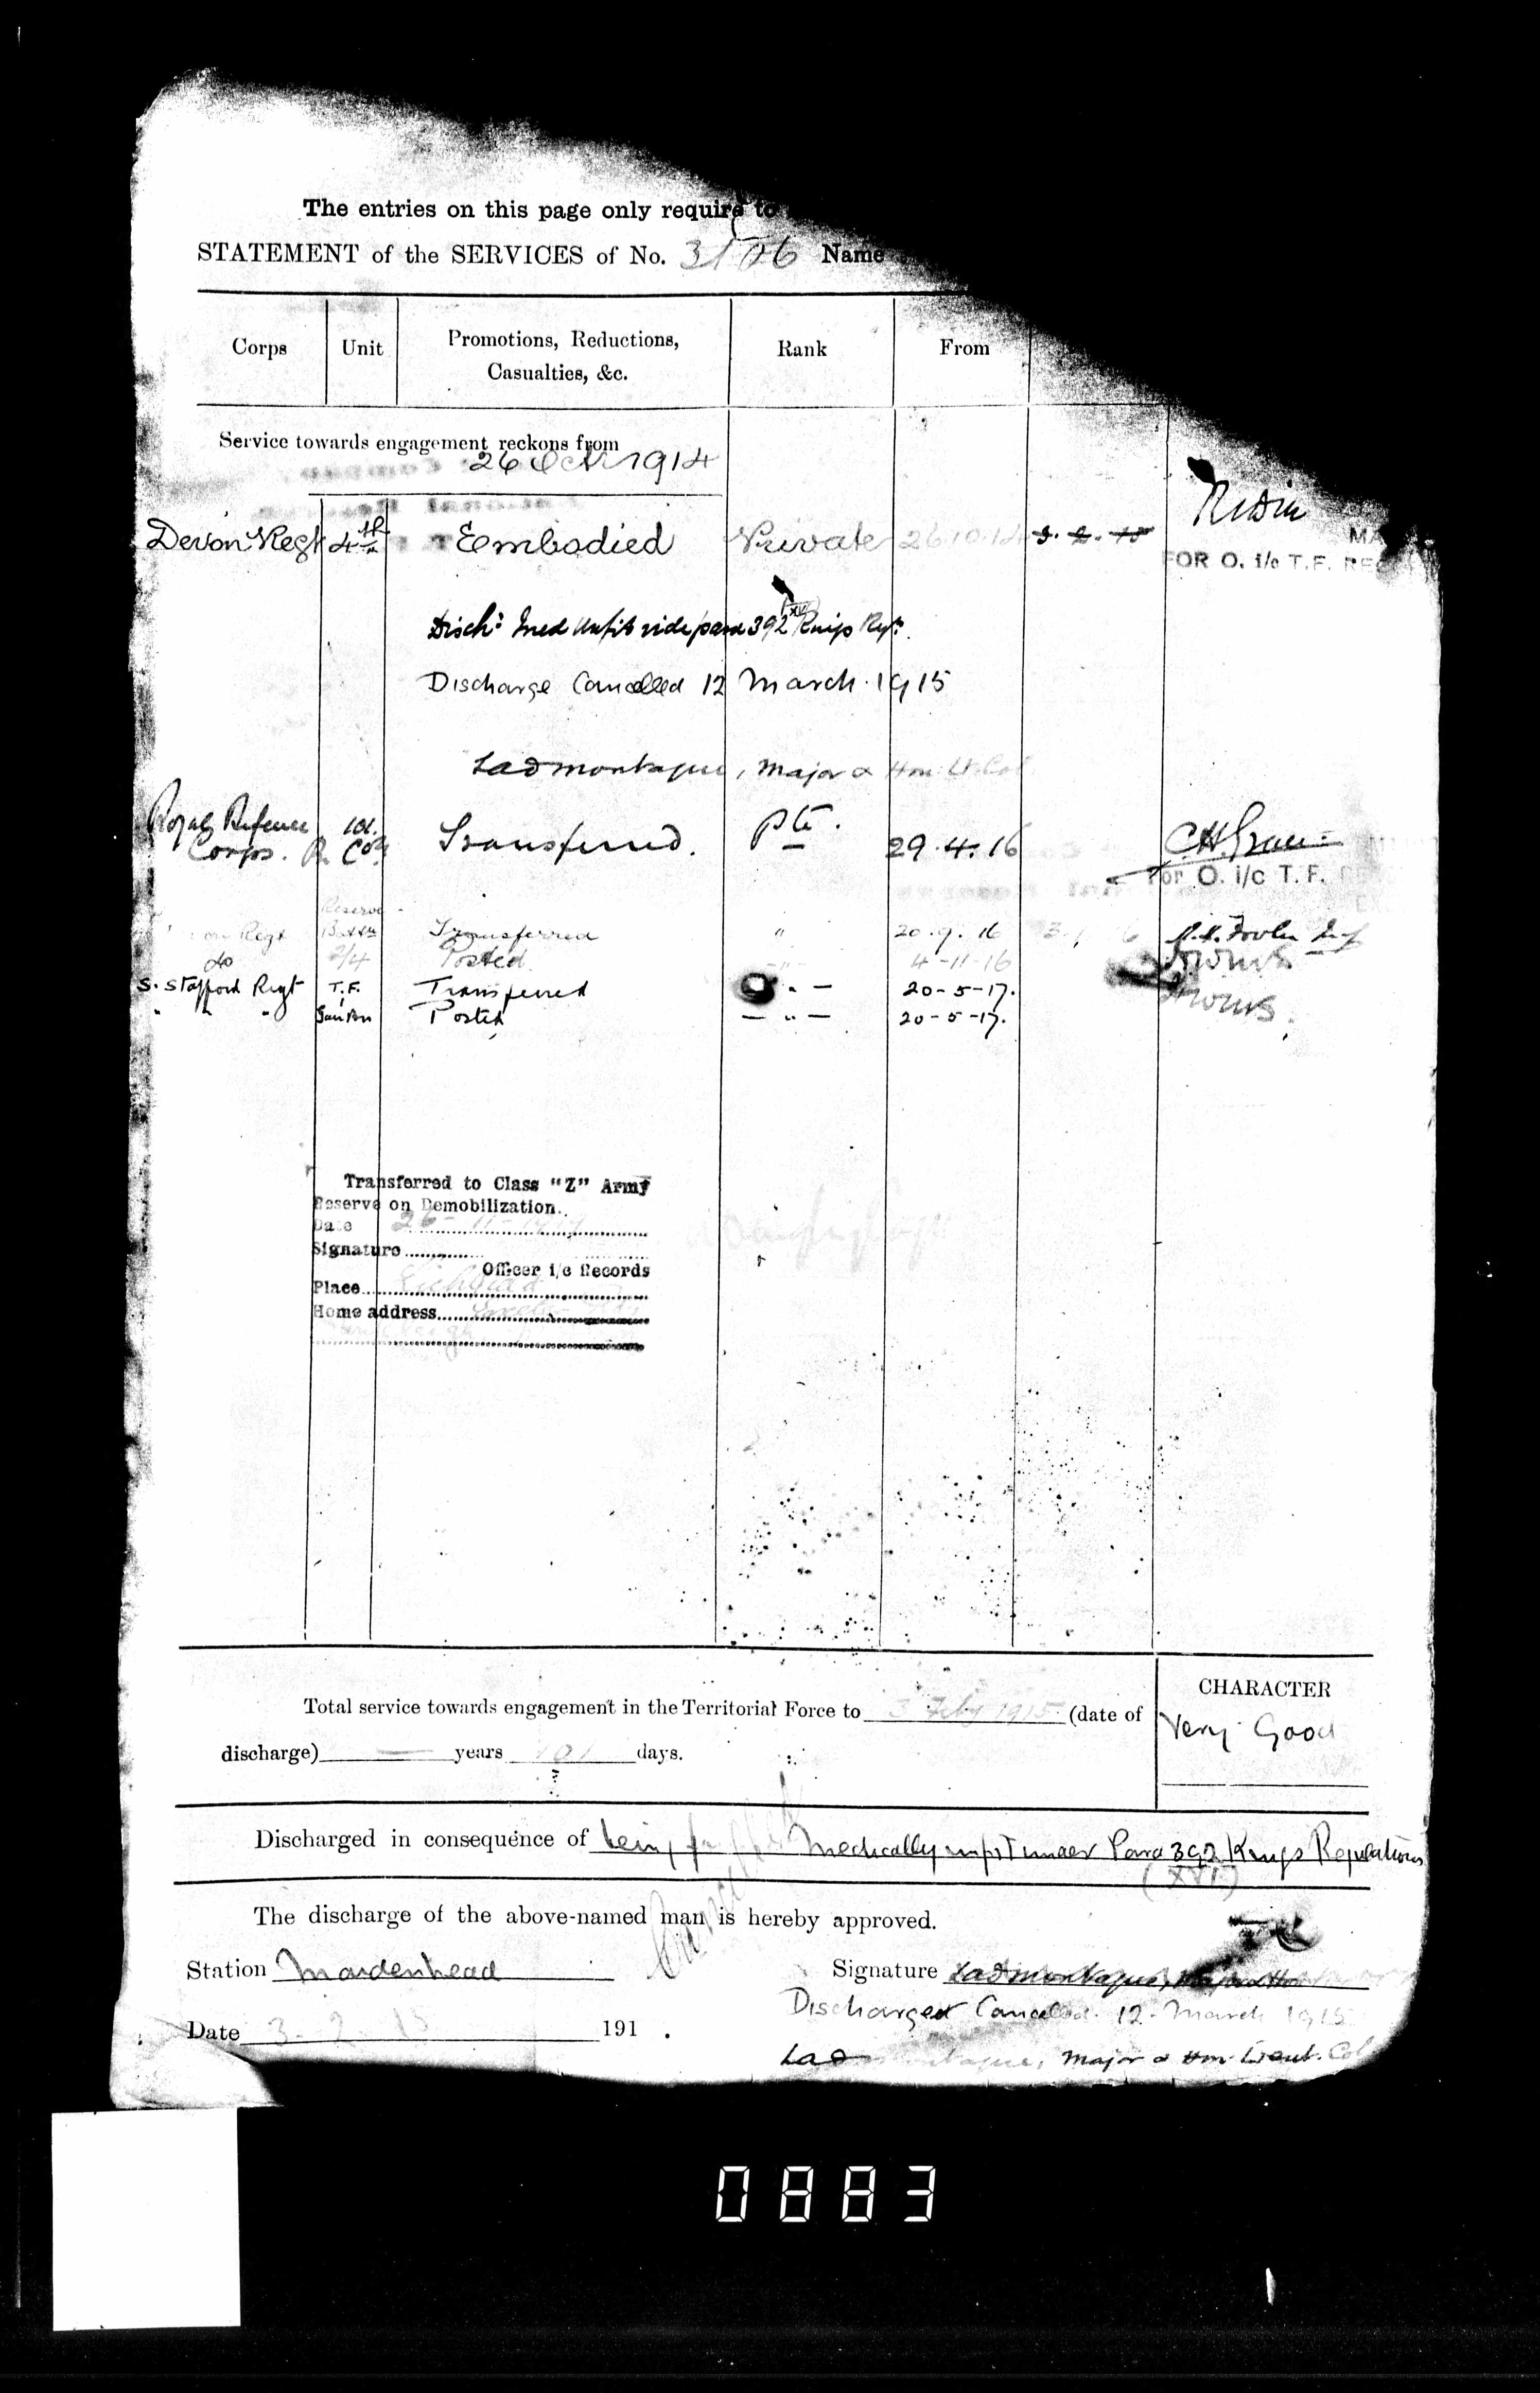 The entries on this page only require to
STATEMENT of the SERVICES of No. 3106 Name
Corps Unit Promotions, Reductions, Casualties, &c. Rank From
Service towards engagement reckons from
26 Oct 1914
Devon Regt 4th Embodied Private 26.10.14 3.2.15
FOR O. i/c T.F. REC
Disch: Med Unfit vide para 392 (XVI) Kings Regs.
Discharge Cancelled 12 March 1915
Montague, Major & Hon: Lt. Col
Royal Defence Corps. 101. Coy Transferred. Pte. 29.4.16
For O. i/c T.F.
Regt Reserve Battn Transferred " 20.9.16
do 2/4 Posted -"- 4-11-16
S. Stafford Regt T.F. Transferred -"- 20-5-17.
" " " Posted -"- 20-5-17.
Transferred to Class "Z" Army
Reserve on Demobilization.
Date 26-11-1919
Signature
Officer i/c Records
Place Lichfield
Home address
Total service towards engagement in the Territorial Force to 3 Feby 1915 (date of
discharge) — years 101 days.
CHARACTER
Very Good
Discharged in consequence of being Medically unfit under Para 392 Kings Regulations
(XVI)
The discharge of the above-named man is hereby approved.
Cancelled
Station Maidenhead
Signature Montague, Major & Hon
Discharged Cancelled. 12. March 1915
Date 3-2-15 191 .
Montague, Major & Hon Lieut. Col
0883